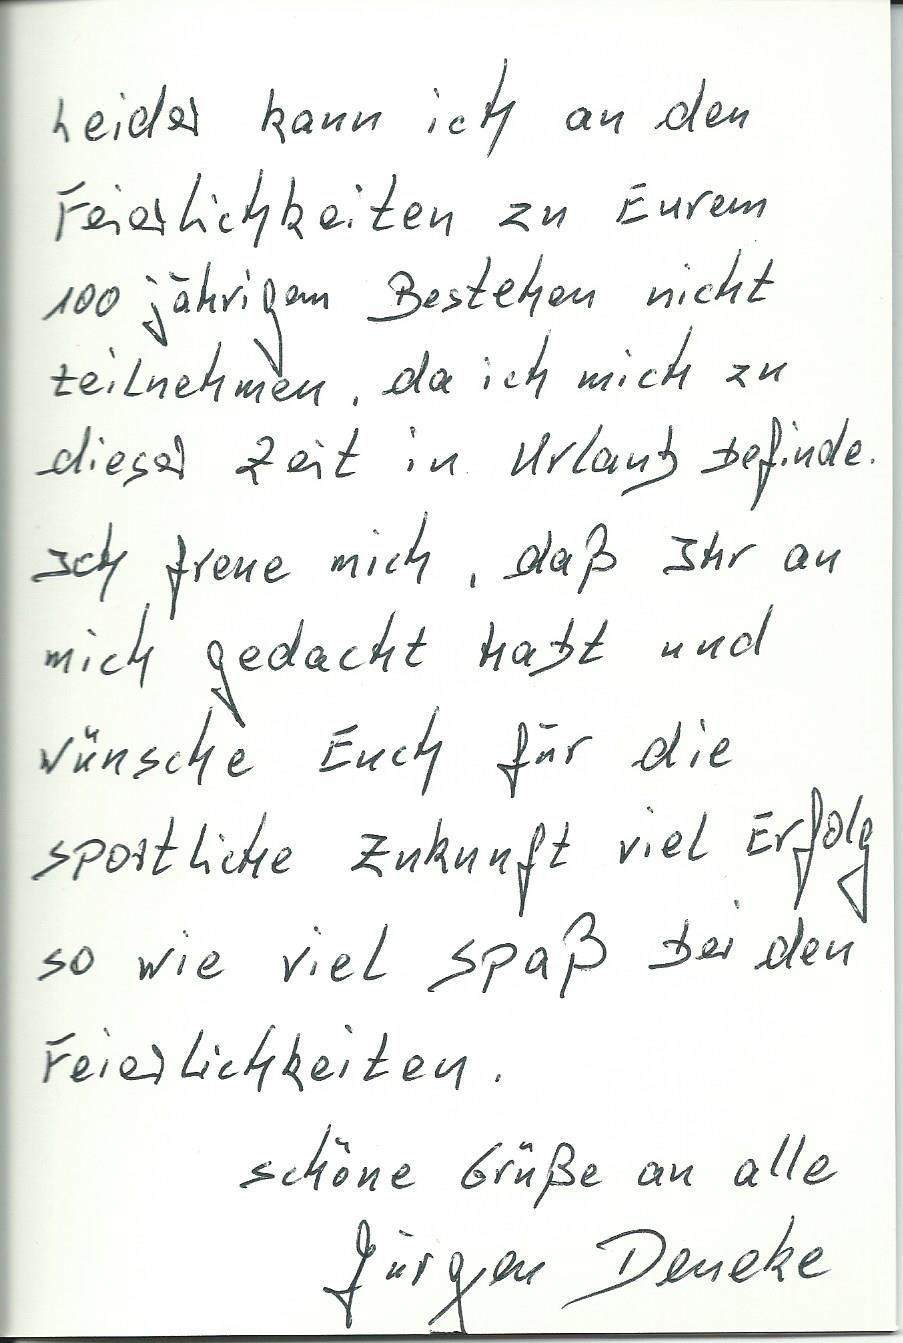 Leider kann ich an den
Feierlichkeiten zu Eurem
100 jährigem Bestehen nicht
teilnehmen, da ich mich zu
dieser Zeit in Urlaub befinde.
Ich freue mich, daß Ihr an
mich gedacht habt und
wünsche Euch für die
sportliche Zukunft viel Erfolg
so wie viel Spaß bei den
Feierlichkeiten.
schöne Grüße an alle
Jürgen Deneke